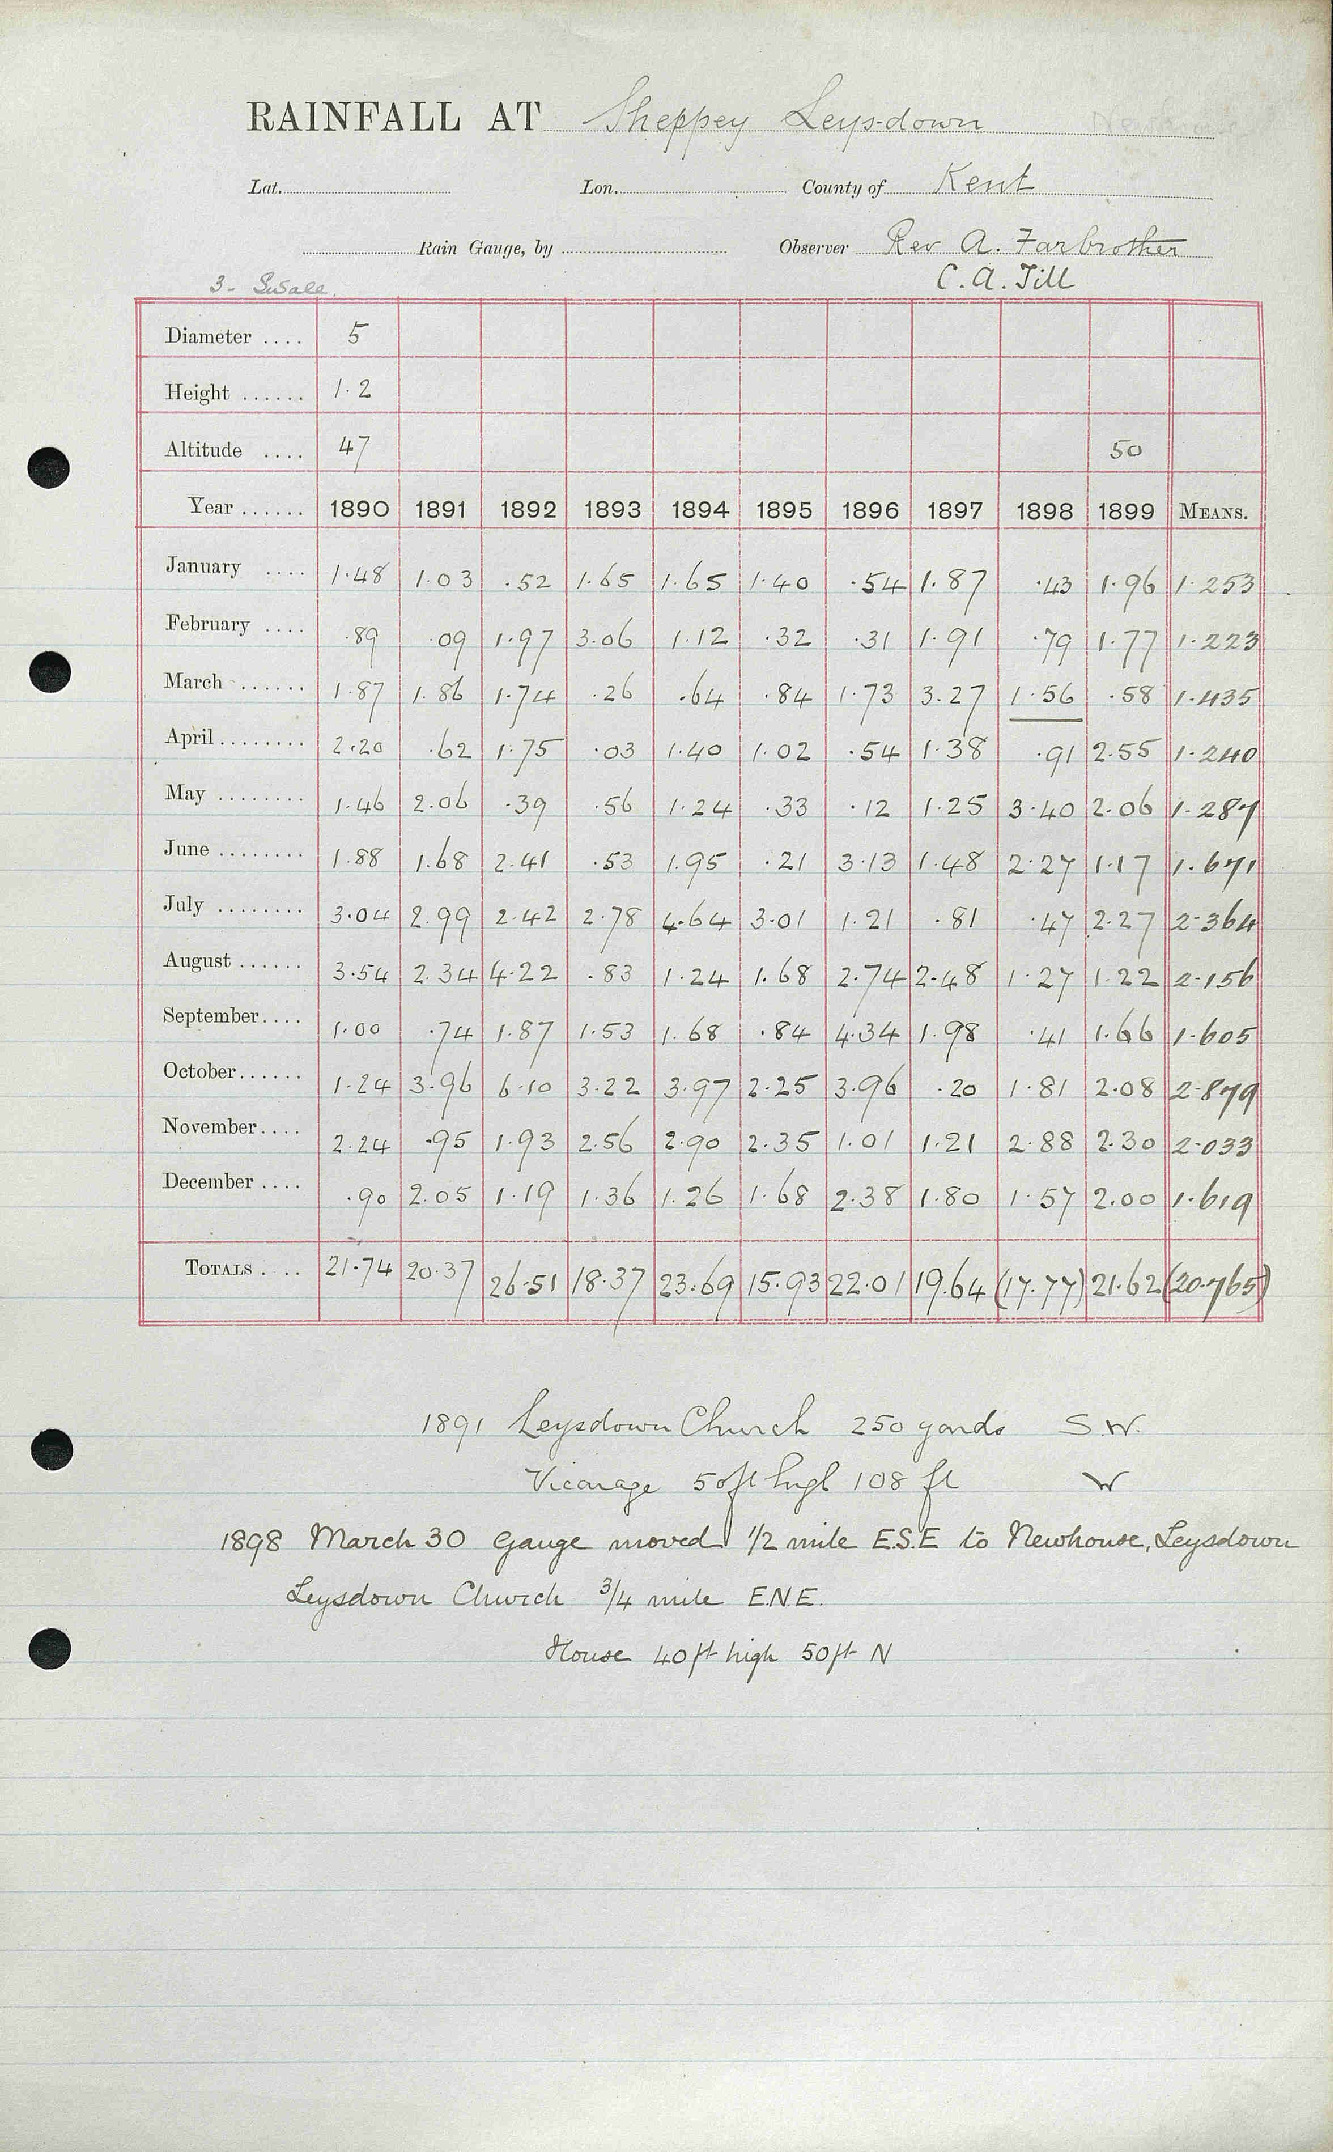 RAINFALL AT Sheppey Leysdown
Lat. Lon. County of Kent
Rain Gauge, by Observer Rev A. Farbrother
C. A. Till
3-
Diameter .... 5
Height ...... 1.2
Altitude .... 47 50
Year ...... 1890 1891 1892 1893 1894 1895 1896 1897 1898 1899 MEANS.
January .... 1.48 1.03 .52 1.65 1.65 1.40 .54 1.87 .43 1.96 1.253
February .... .89 .09 1.97 3.06 1.12 .32 .31 1.91 .79 1.77 1.223
March ...... 1.87 1.86 1.74 .26 .64 .84 1.73 3.27 1.56 .58 1.435
April ........ 2.20 .62 1.75 .03 1.40 1.02 .54 1.38 .91 2.55 1.240
May ........ 1.46 2.06 .39 .56 1.24 .33 .12 1.25 3.40 2.06 1.287
June ........ 1.88 1.68 2.41 .53 1.95 .21 3.13 1.48 2.27 1.17 1.671
July ........ 3.04 2.99 2.42 2.78 4.64 3.01 1.21 .81 .47 2.27 2.364
August ...... 3.54 2.34 4.22 .83 1.24 1.68 2.74 2.48 1.27 1.22 2.156
September.... 1.00 .74 1.87 1.53 1.68 .84 4.34 1.98 .41 1.66 1.605
October...... 1.24 3.96 6.10 3.22 3.97 2.25 3.96 .20 1.81 2.08 2.879
November.... 2.24 .95 1.93 2.56 2.90 2.35 1.01 1.21 2.88 2.30 2.033
December .... .90 2.05 1.19 1.36 1.26 1.68 2.38 1.80 1.57 2.00 1.619
TOTALS .... 21.74 20.37 26.51 18.37 23.69 15.93 22.01 19.64 (17.77) 21.62 (20.765)
1891 Leysdown Church 250 yards S.W.
Vicarage 50ft high 108 ft W
1898 March 30 Gauge moved 1/2 mile E.S.E to Newhouse, Leysdown
Leysdown Church 3/4 mile E.N.E.
House 40ft high 50ft N